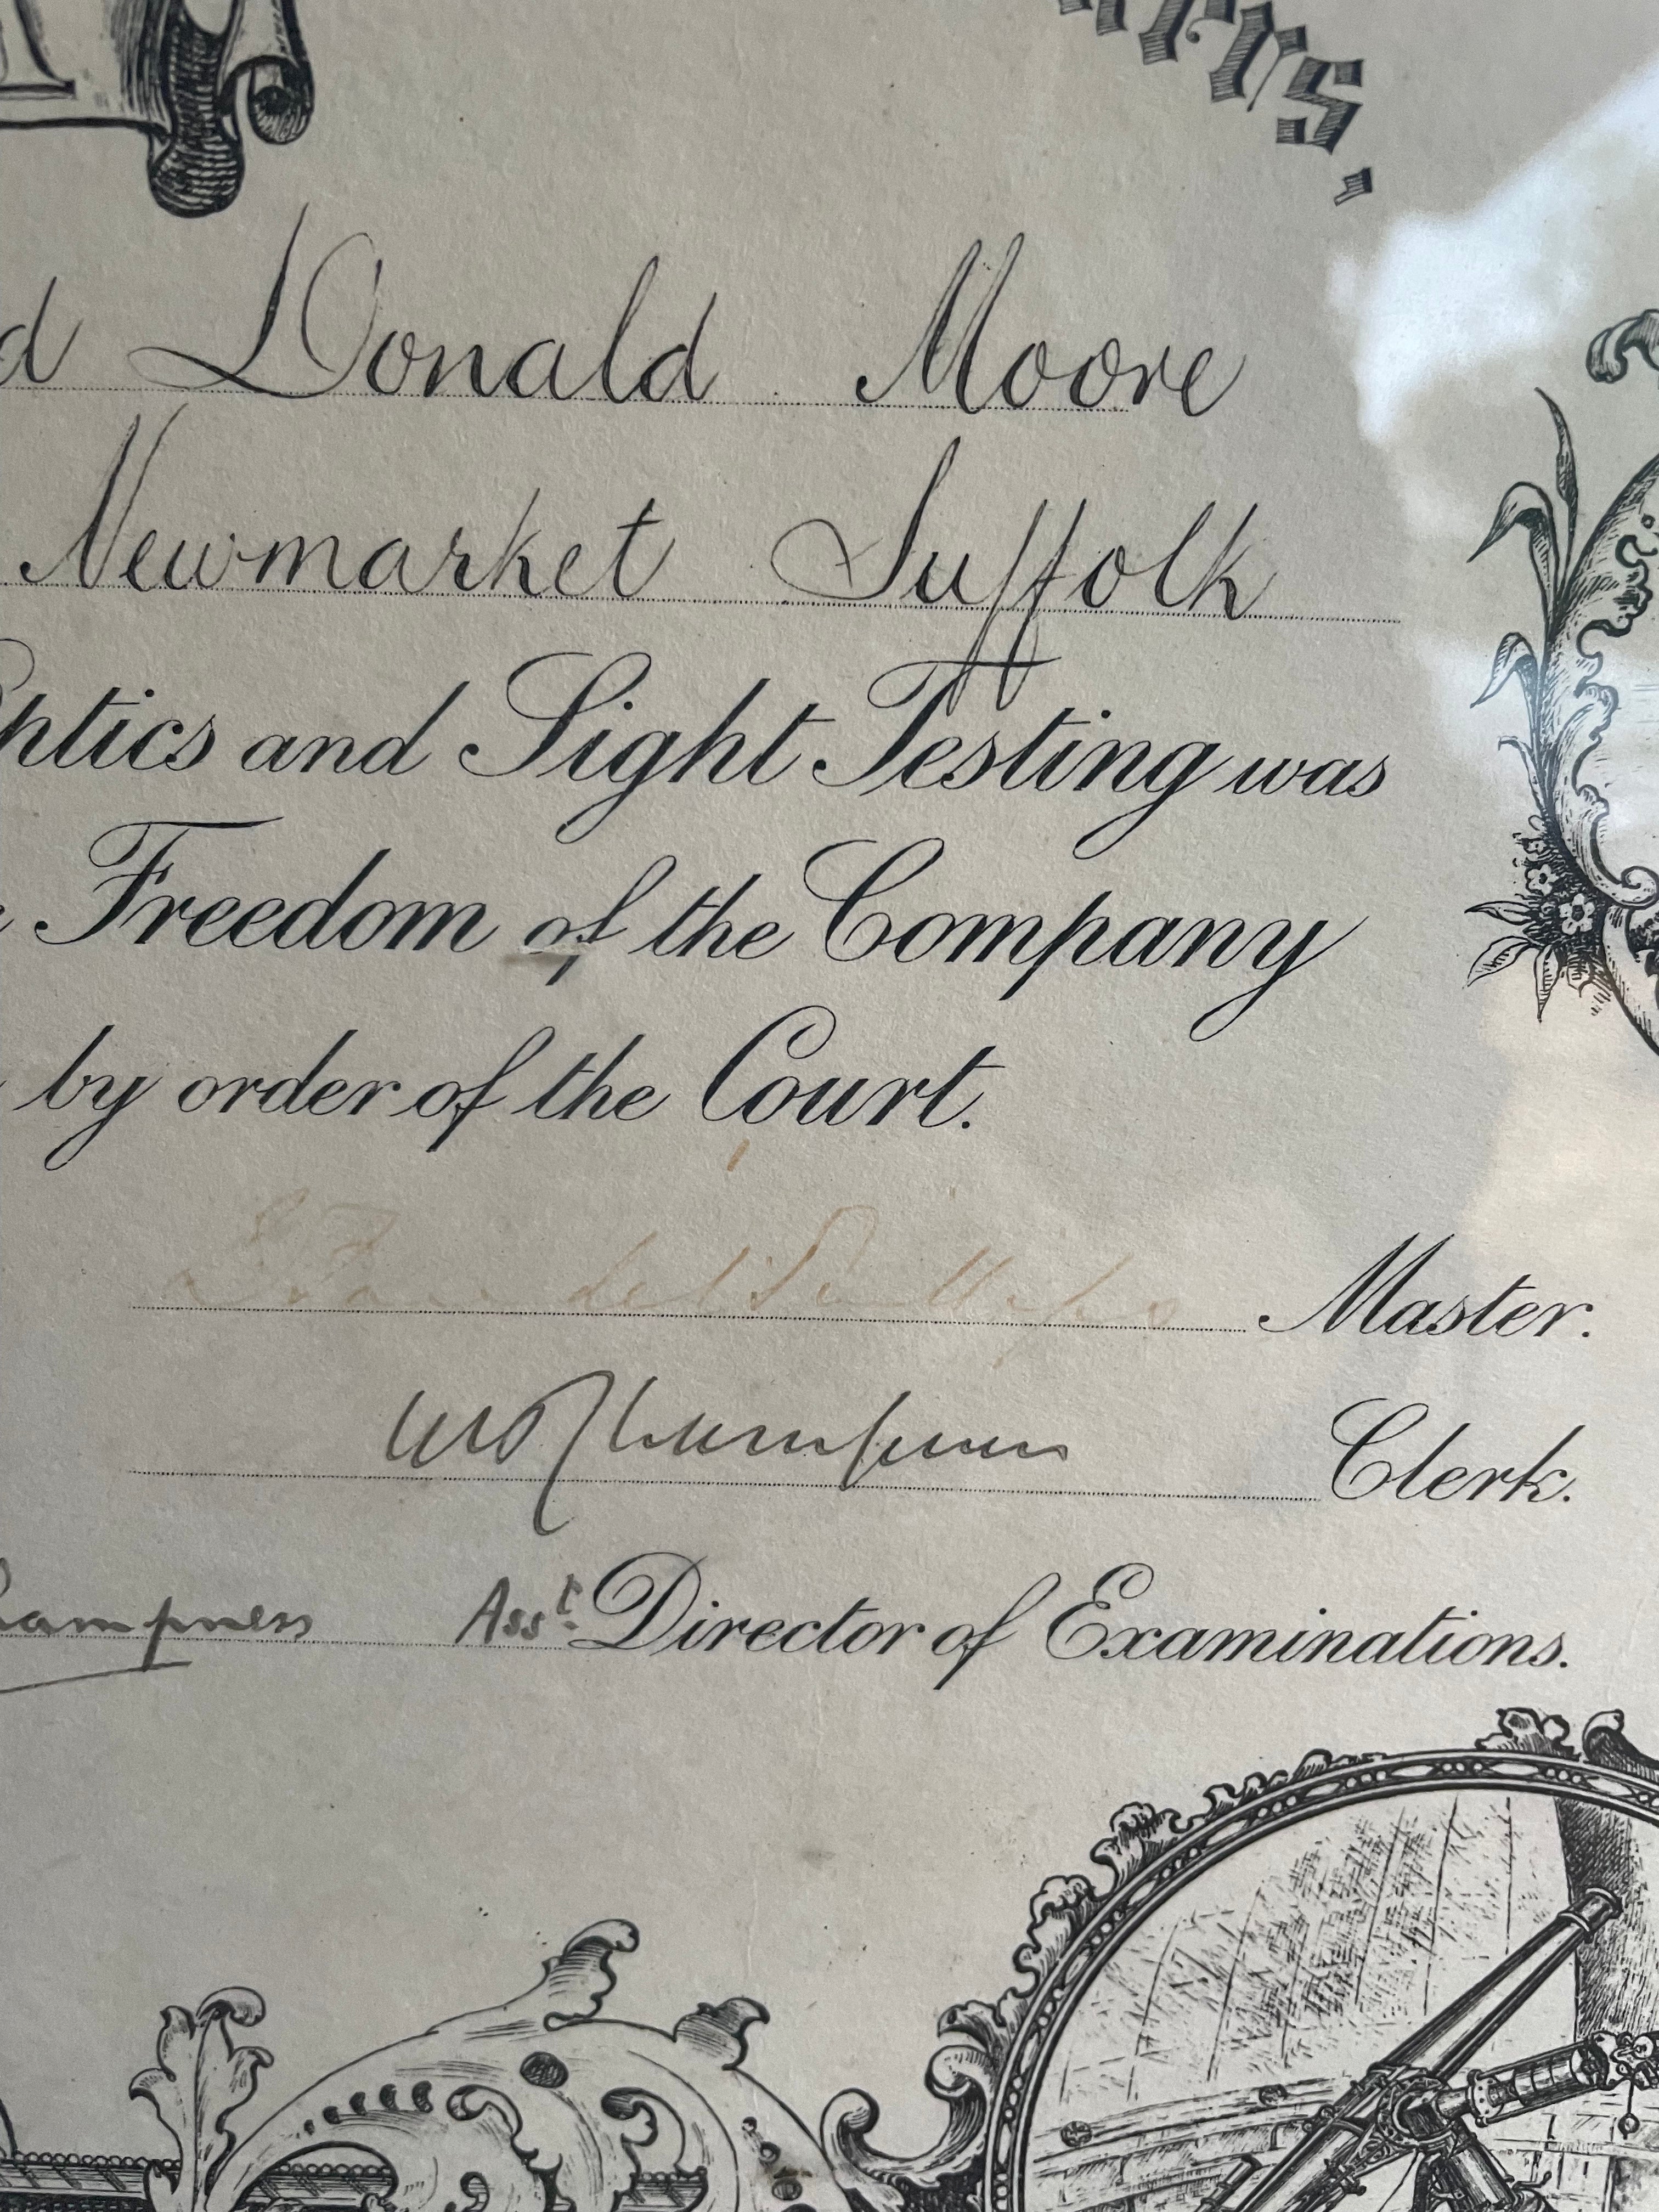 d Donald Moore
Newmarket Suffolk
ptics and Sight Testing was
Freedom of the Company
by order of the Court.
Master.
Clerk.
ampness Ass.t Director of Examinations.